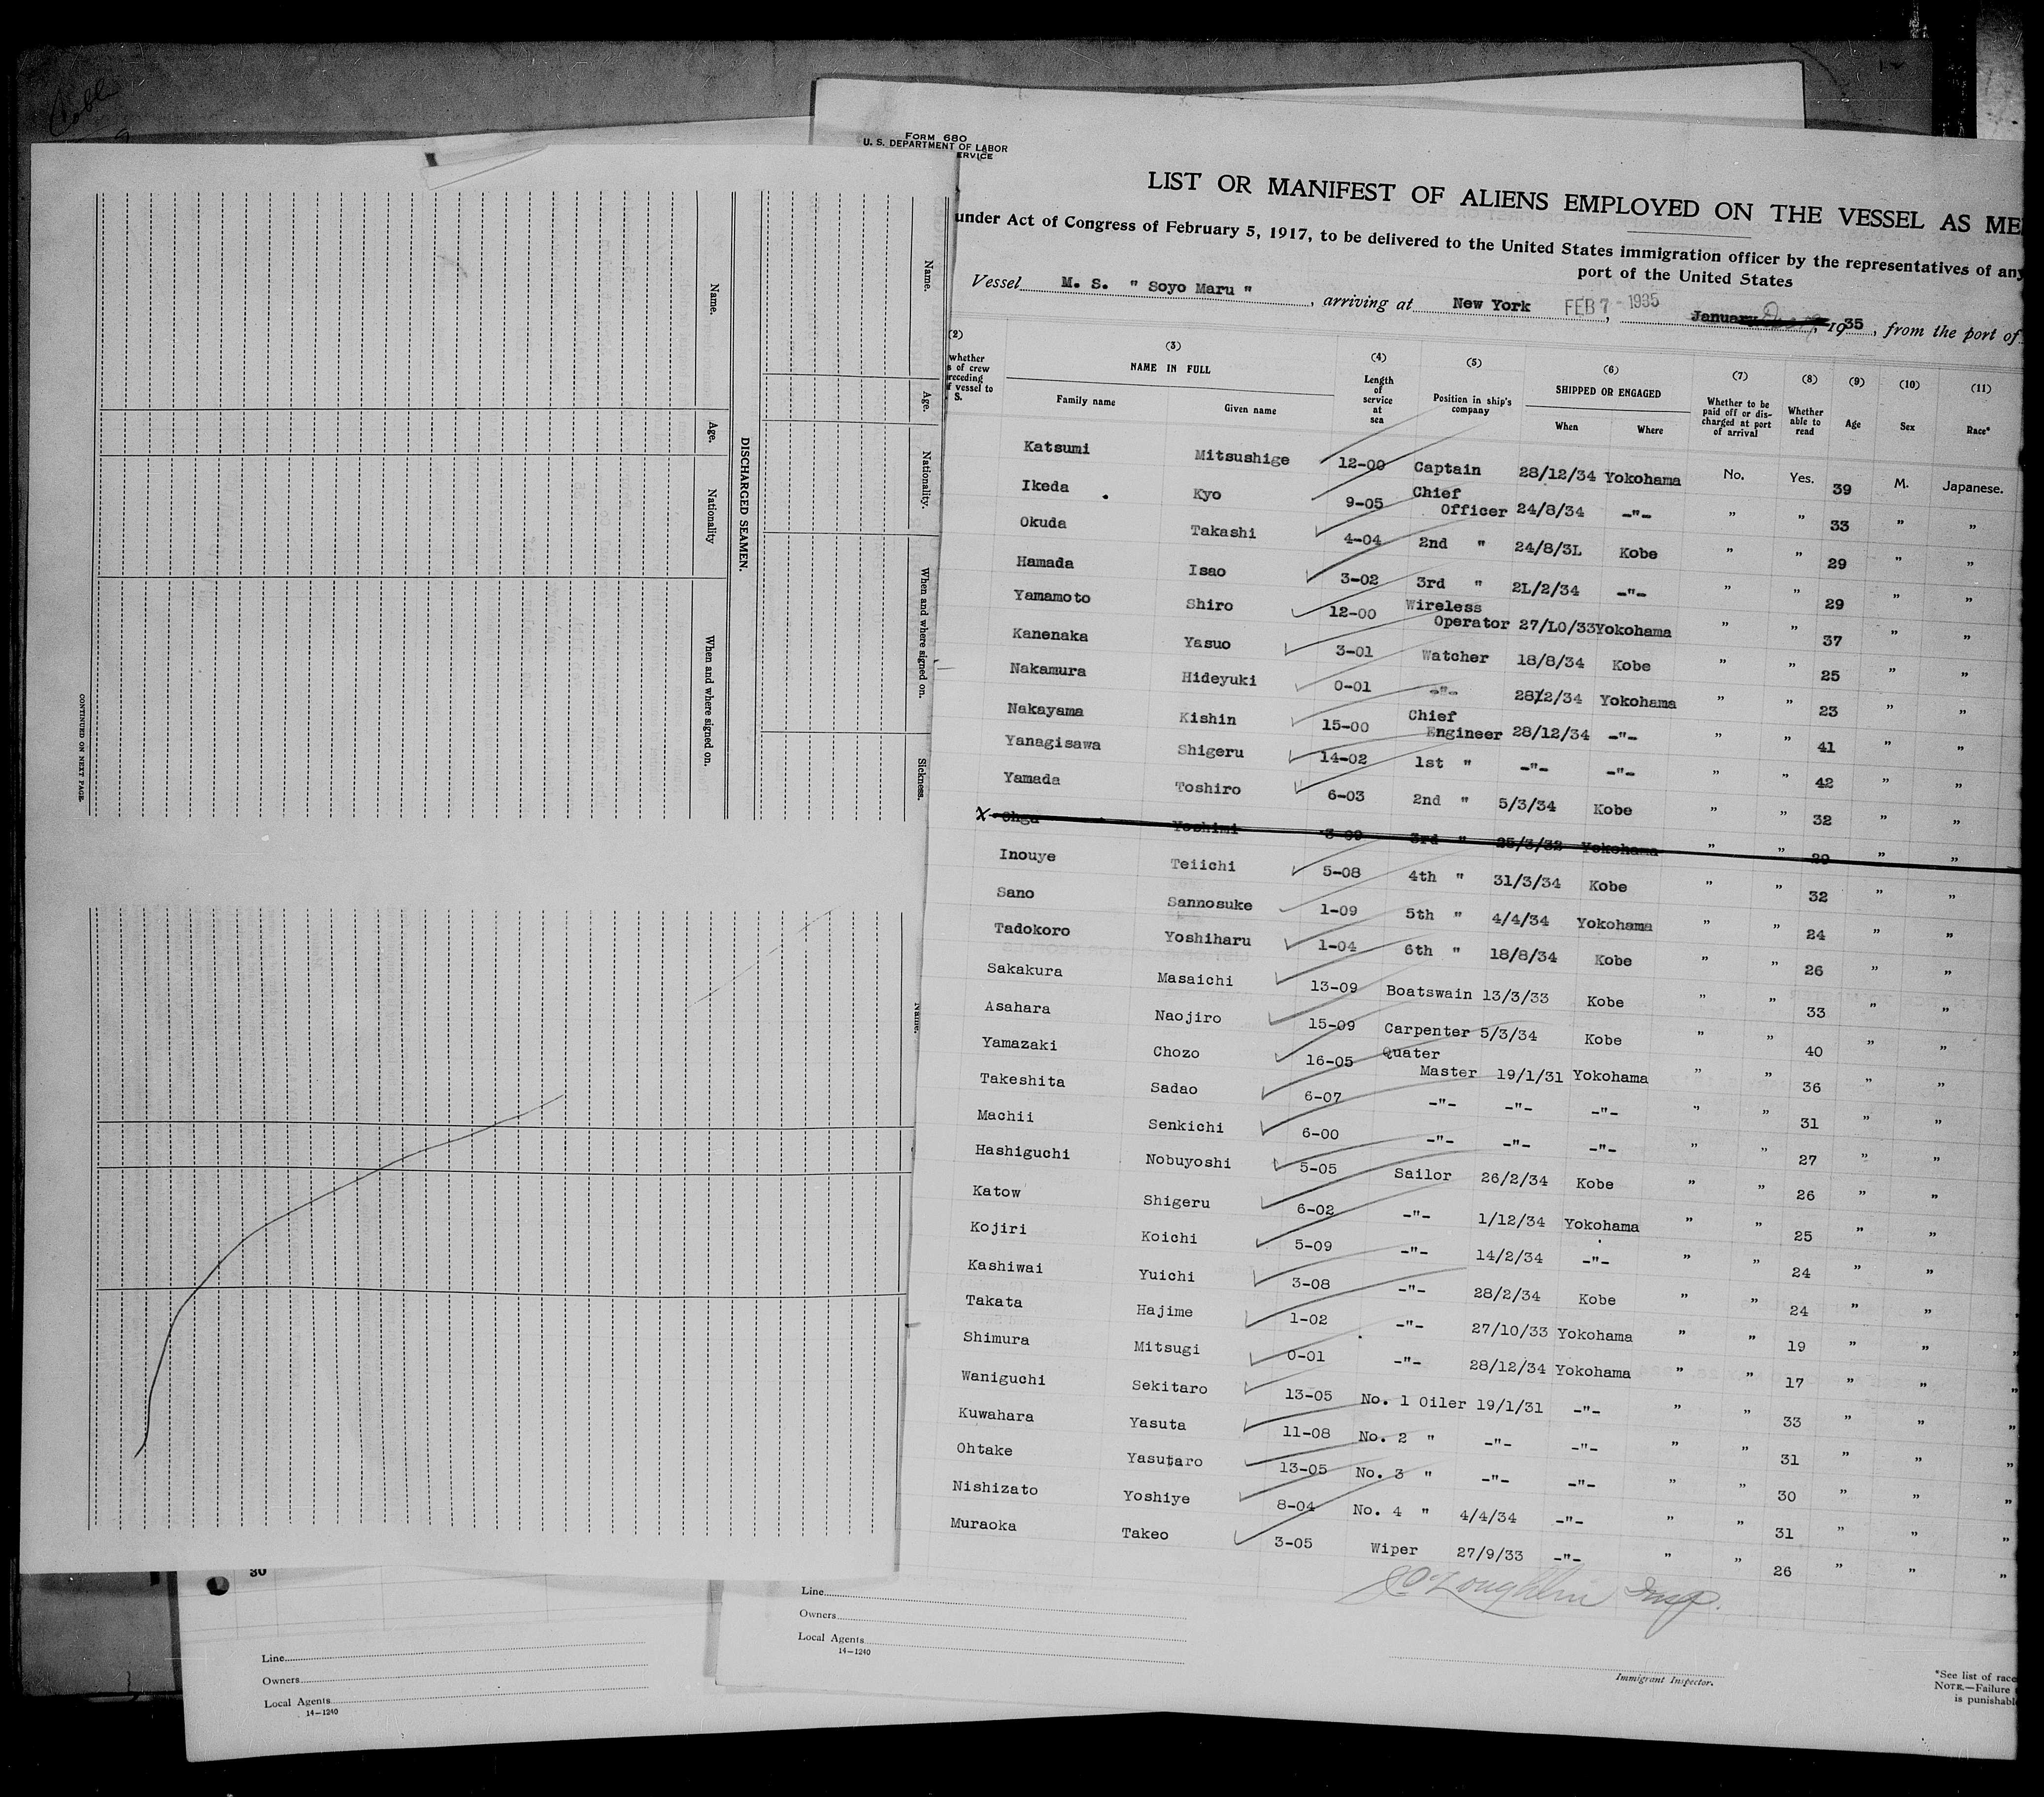 FORM 680
U. S. DEPARTMENT OF LABOR
ERVICE
LIST OR MANIFEST OF ALIENS EMPLOYED ON THE VESSEL AS ME
under Act of Congress of February 5, 1917, to be delivered to the United States immigration officer by the representatives of any
port of the United States
Vessel M. S. " Soyo Maru " , arriving at New York FEB 7 - 1935 , January , 1935 , from the port of
(2) (3) (4) (5) (6) (7) (8) (9) (10) (11)
whether
s of crew
receding
f vessel to
S.
NAME IN FULL
Family name Given name
Length of service at sea
Position in ship's company
SHIPPED OR ENGAGED
When Where
Whether to be paid off or discharged at port of arrival
Whether able to read
Age
Sex
Race*
Katsumi Mitsushige 12-00 Captain 28/12/34 Yokohama No. Yes. 39 M. Japanese.
Ikeda Kyo 9-05 Chief Officer 24/8/34 -"- " " 33 " "
Okuda Takashi 4-04 2nd " 24/8/3L Kobe " " 29 " "
Hamada Isao 3-02 3rd " 2L/2/34 -"- " " 29 " "
Yamamoto Shiro 12-00 Wireless Operator 27/L0/33 Yokohama " " 37 " "
Kanenaka Yasuo 3-01 Watcher 18/8/34 Kobe " " 25 " "
Nakamura Hideyuki 0-01 -"- 28/2/34 Yokohama " " 23 " "
Nakayama Kishin 15-00 Chief Engineer 28/12/34 -"- " " 41 " "
Yanagisawa Shigeru 14-02 1st " -"- -"- " " 42 " "
Yamada Toshiro 6-03 2nd " 5/3/34 Kobe " " 32 " "
X Ohga Yoshimi 3-09 3rd " 25/3/32 Yokohama " " 29 " "
Inouye Teiichi 5-08 4th " 31/3/34 Kobe " " 32 " "
Sano Sannosuke 1-09 5th " 4/4/34 Yokohama " " 24 " "
Tadokoro Yoshiharu 1-04 6th " 18/8/34 Kobe " " 26 " "
Sakakura Masaichi 13-09 Boatswain 13/3/33 Kobe " " 33 " "
Asahara Naojiro 15-09 Carpenter 5/3/34 Kobe " " 40 " "
Yamazaki Chozo 16-05 Quater Master 19/1/31 Yokohama " " 36 " "
Takeshita Sadao 6-07 -"- -"- -"- " " 31 " "
Machii Senkichi 6-00 -"- -"- -"- " " 27 " "
Hashiguchi Nobuyoshi 5-05 Sailor 26/2/34 Kobe " " 26 " "
Katow Shigeru 6-02 -"- 1/12/34 Yokohama " " 25 " "
Kojiri Koichi 5-09 -"- 14/2/34 -"- " " 24 " "
Kashiwai Yuichi 3-08 -"- 28/2/34 Kobe " " 24 " "
Takata Hajime 1-02 -"- 27/10/33 Yokohama " " 19 " "
Shimura Mitsugi 0-01 -"- 28/12/34 Yokohama " " 17 " "
Waniguchi Sekitaro 13-05 No. 1 Oiler 19/1/31 -"- " " 33 " "
Kuwahara Yasuta 11-08 No. 2 " -"- -"- " " 31 " "
Ohtake Yasutaro 13-05 No. 3 " -"- -"- " " 30 " "
Nishizato Yoshiye 8-04 No. 4 " 4/4/34 -"- " " 31 " "
Muraoka Takeo 3-05 Wiper 27/9/33 -"- " " 26 " "
O'Loughlin Insp.
Immigrant Inspector.
*See list of race
NOTE.—Failure
is punishabl
Line
Owners
Local Agents
14—1240
30
Line
Owners
Local Agents
14—1240
Name. Age. Nationality. When and where signed on. Sickness.
DISCHARGED SEAMEN.
Name. Age. Nationality When and where signed on.
CONTINUED ON NEXT PAGE.
Name.